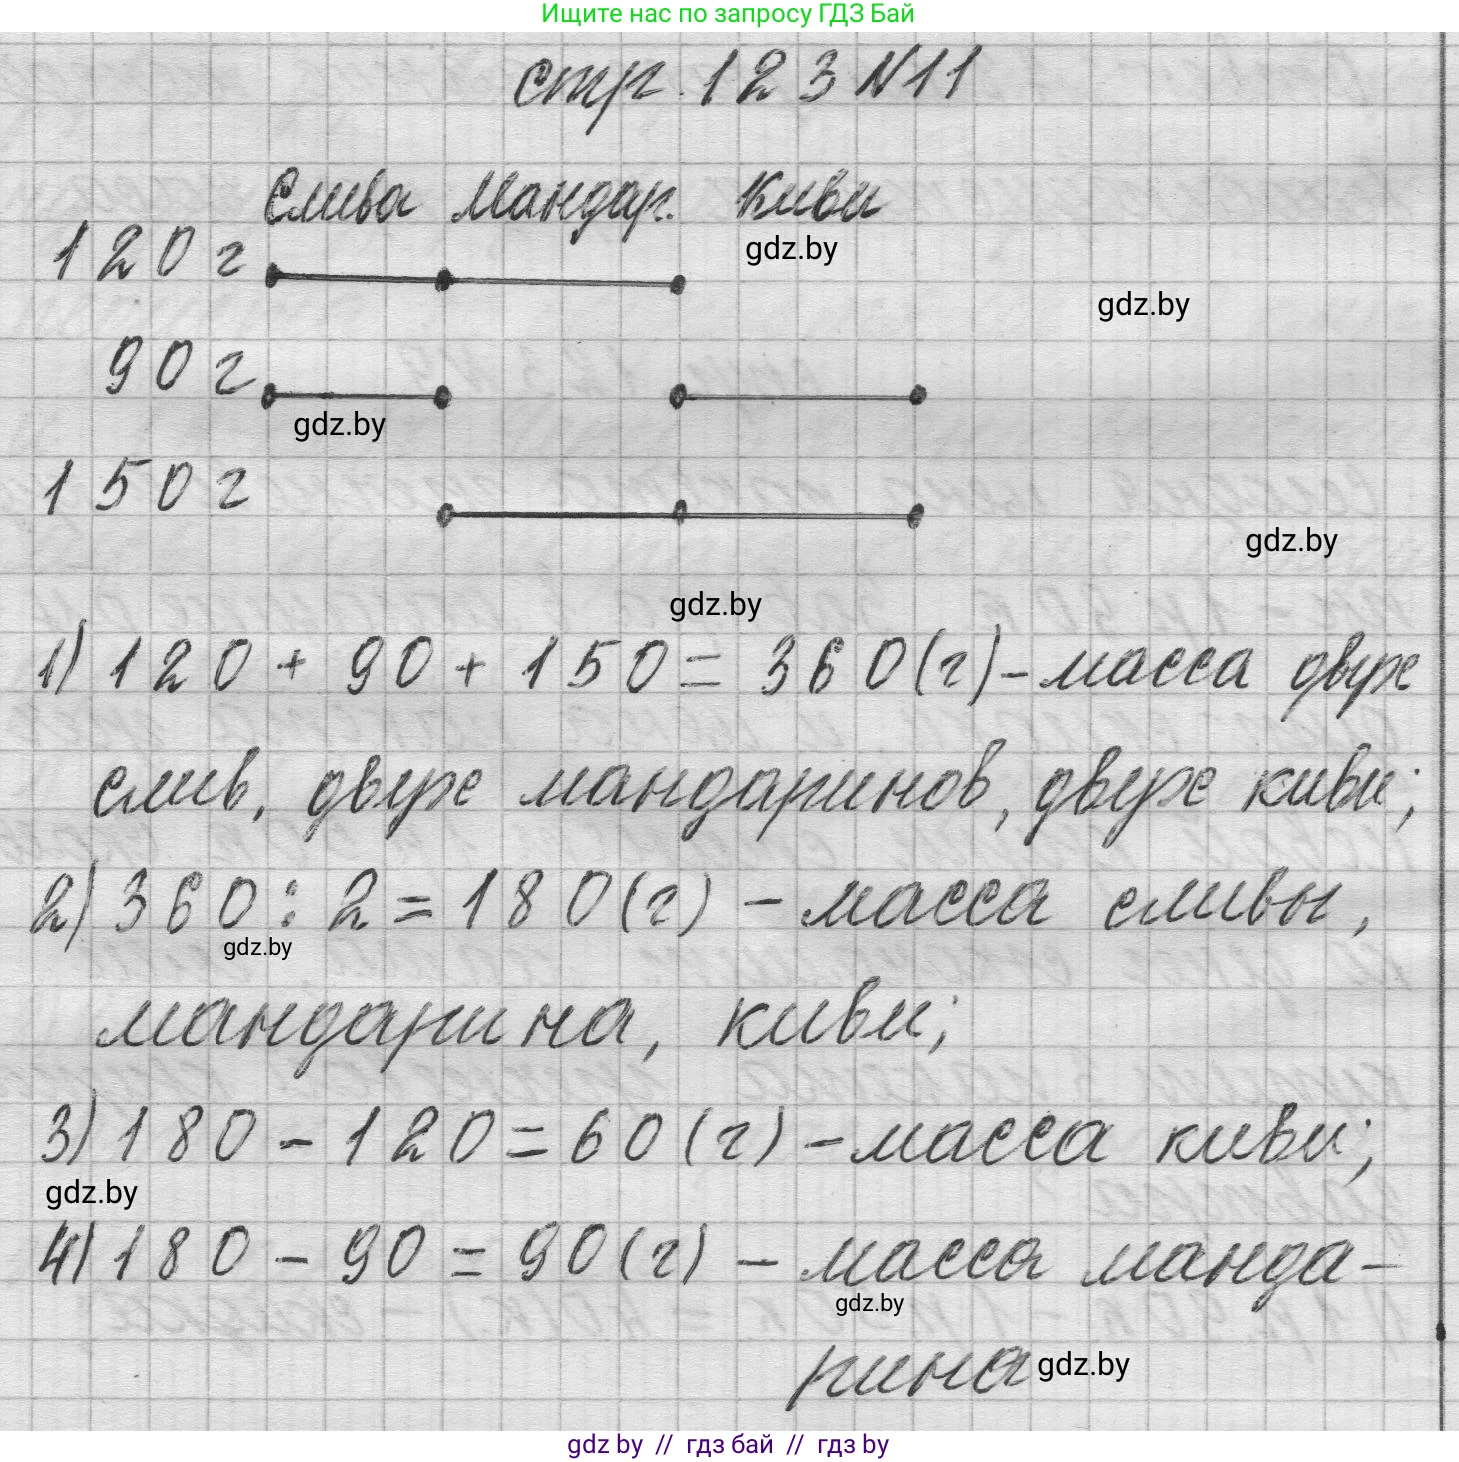 Ищите нас по запросу ГДЗ Бай
стр. 123 N11
Слива Мандар. Киви
gdz.by
120 г
gdz.by
90 г
gdz.by
150 г
gdz.by
gdz.by
1) 120 + 90 + 150 = 360 (г) - масса двух
слив, двух мандаринов, двух киви;
2) 360 : 2 = 180 (г) - масса сливы,
gdz.by
мандарина, киви;
3) 180 - 120 = 60 (г) - масса киви;
gdz.by
4) 180 - 90 = 90 (г) - масса манда-
gdz.by
рина
gdz.by
gdz by // гдз бай // гдз by